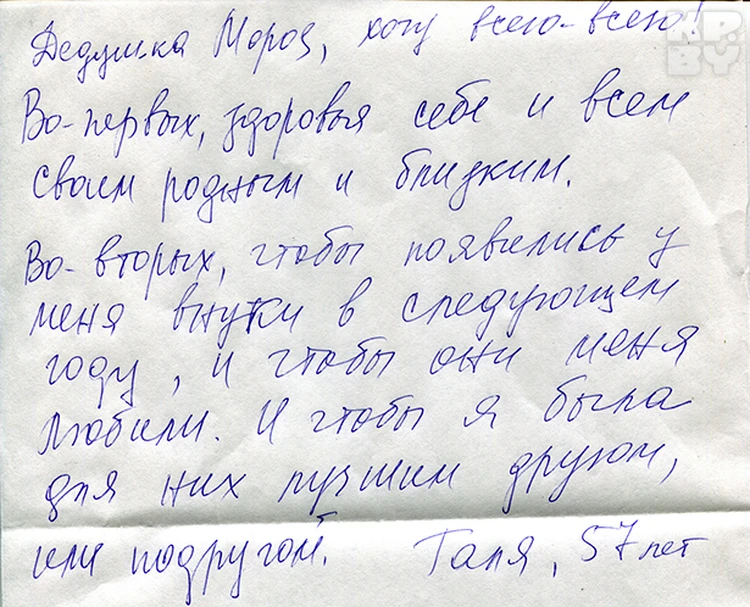 Дедушка Мороз, хочу всего-всего!
KP.
BY
Во-первых, здоровья себе и всем
своим родным и близким.
Во-вторых, чтобы появились у
меня внуки в следующем
году, и чтобы они меня
любили. И чтобы я была
для них лучшим другом,
или подругой. Галя, 57 лет